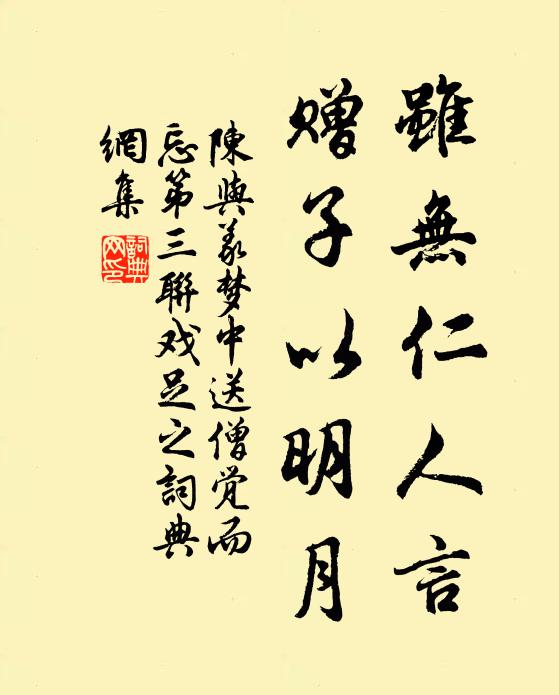 雖無仁人言
贈子以明月
陳與义梦中送僧觉而
忘第三聯戏足之詞典
網集
詞典
网印